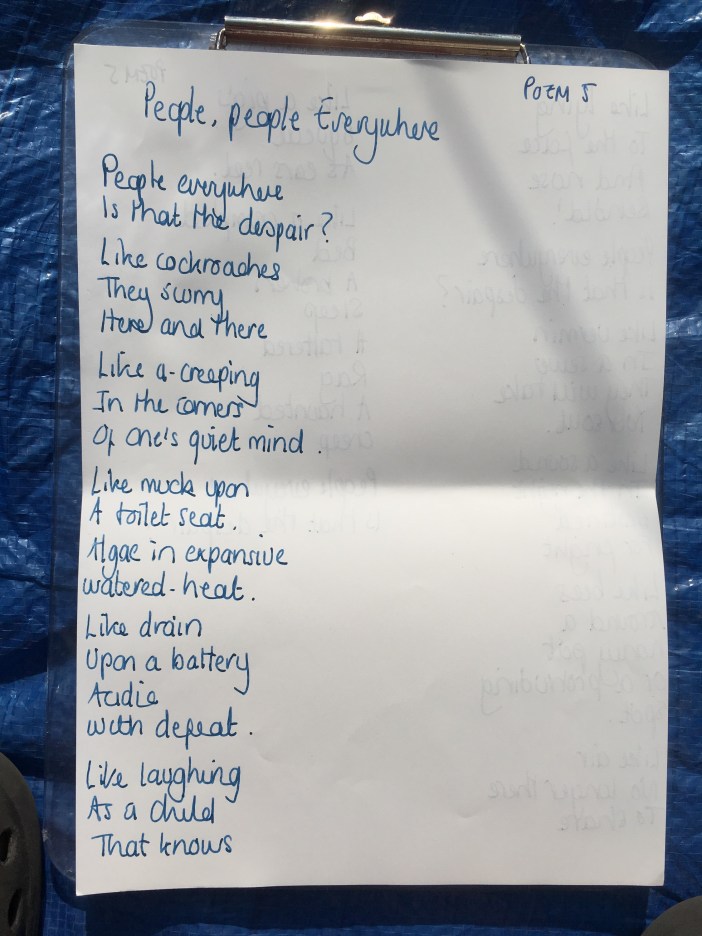 POEM 5
People, people Everywhere
People everywhere
Is that the despair?
Like cockroaches
They scurry
Here and there
Like a-creeping
In the corners
Of one's quiet mind.
Like muck upon
A toilet seat.
Algae in expansive
watered-heat.
Like drain
Upon a battery
Acidic
with defeat.
Like laughing
As a child
That knows